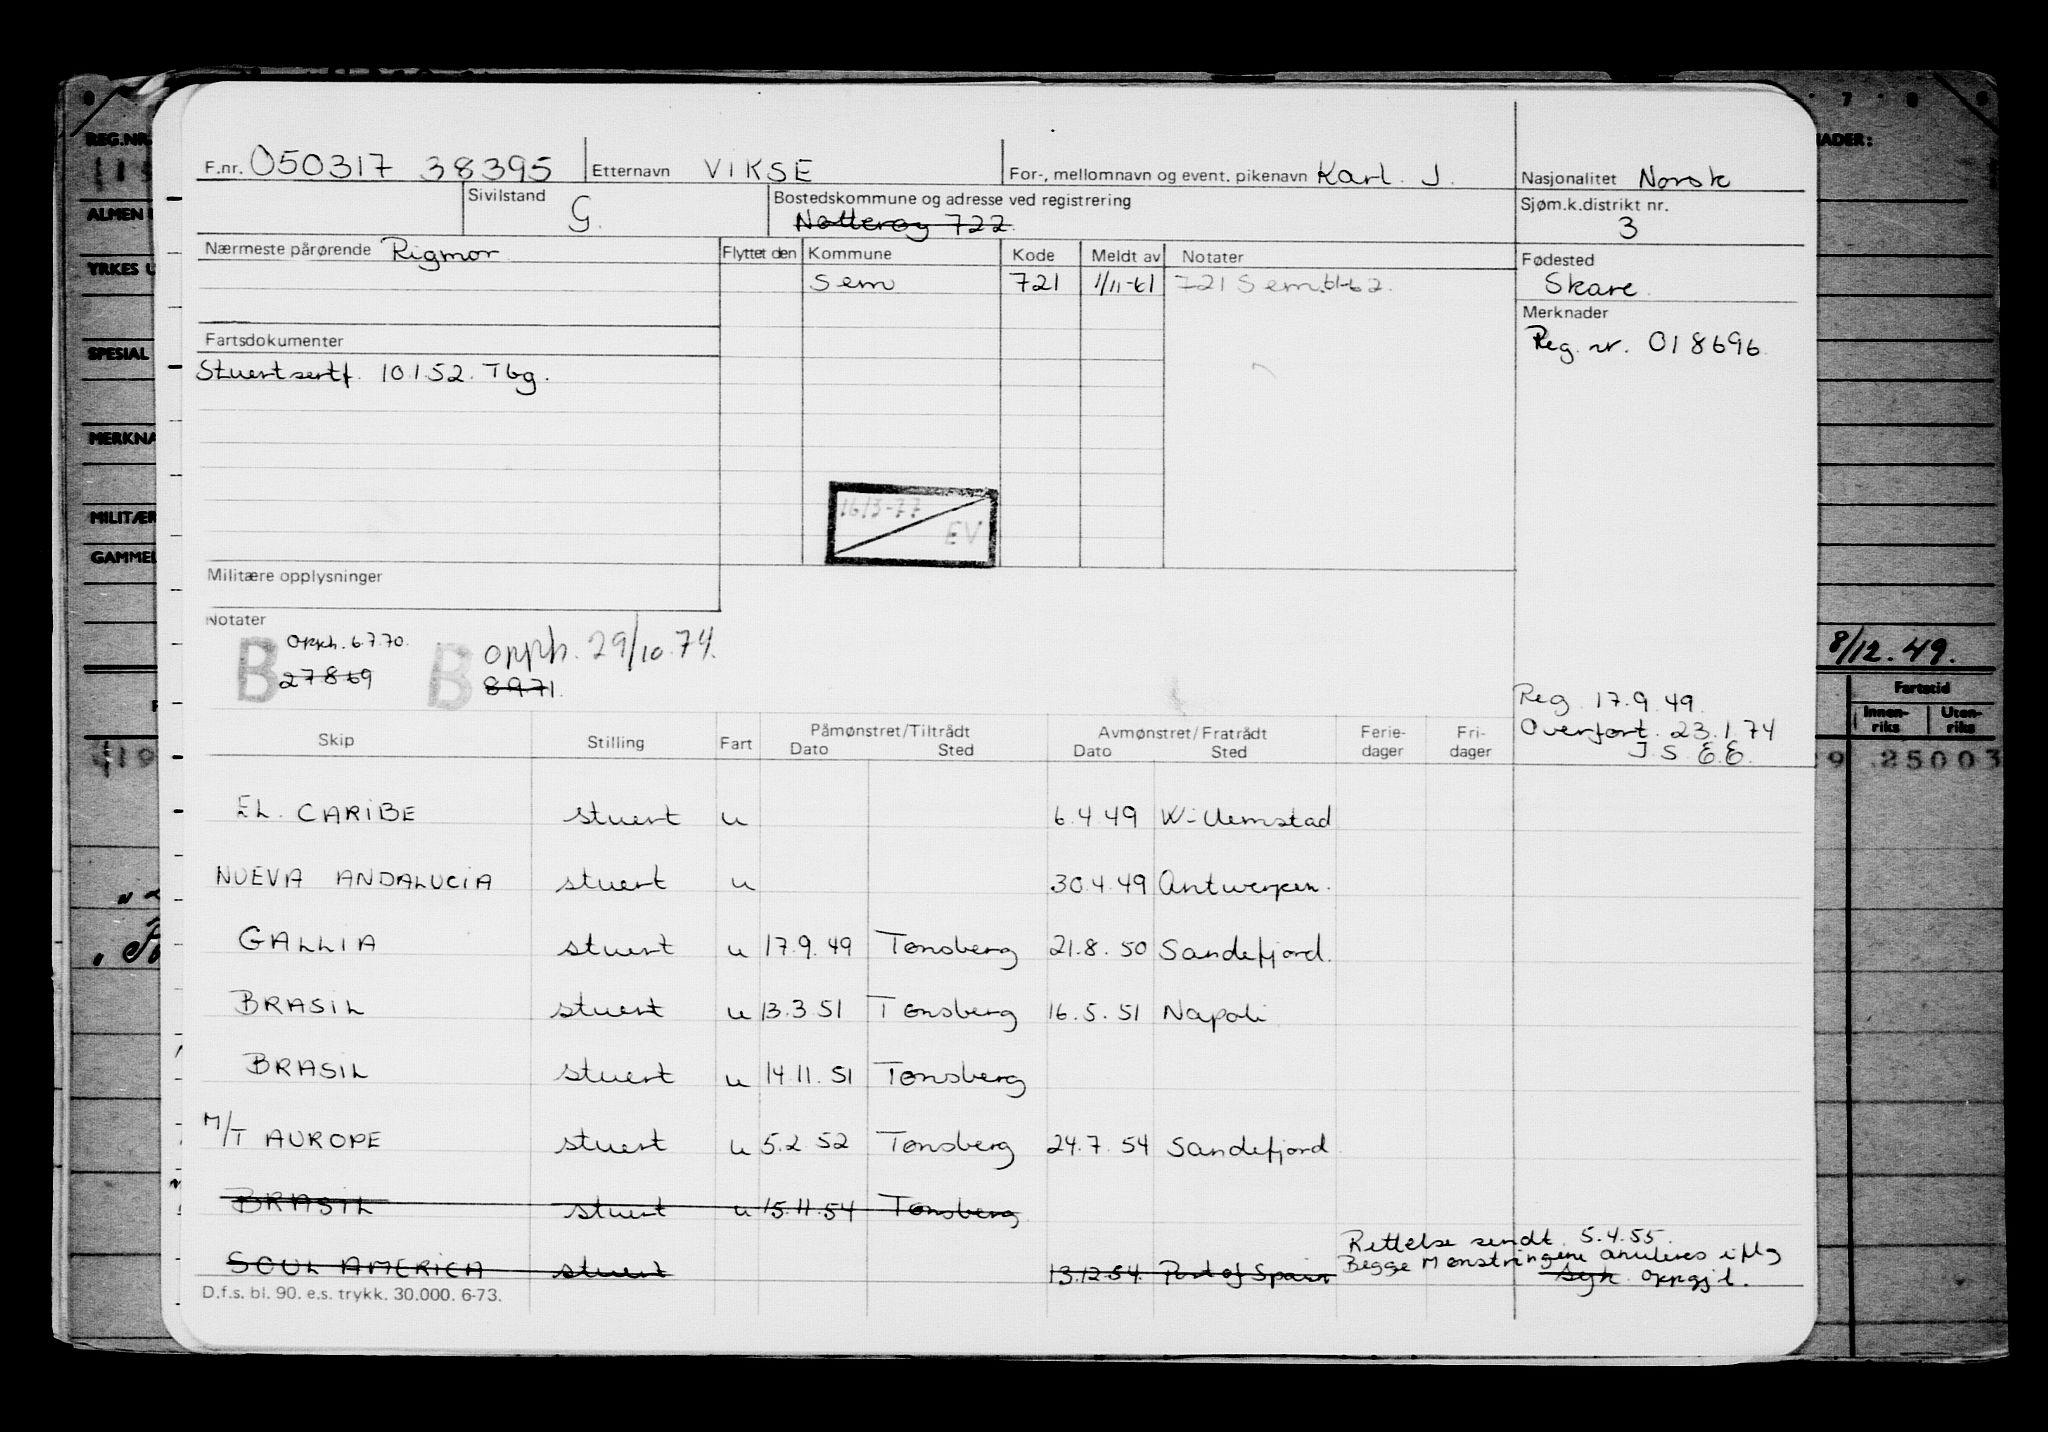 F.nr. 050317 38395 Etternavn VIKSE For-, mellomnavn og event. pikenavn Karl. J. Nasjonalitet Norsk
Sivilstand G. Bostedskommune og adresse ved registrering Nøtterøy 722 Sjøm.k.distrikt nr. 3
Nærmeste pårørende Rigmor Flyttet den Kommune Kode Meldt av Notater Fødested
Sem 721 1/11-61 721 Sem 61-62. Skare.
Merknader
Fartsdokumenter Reg. nr. 018696.
Stuertsertf. 10.1.52. Tbg.
16/3-77
EV
Militære opplysninger
Notater
B Opph. 6.7.70. B opph. 29/10.74.
27869 8971.
Reg. 17.9.49.
Overført. 23.1.74
J.S. E.E.
Skip Stilling Fart Påmønstret/Tiltrådt Avmønstret/Fratrådt Ferie- Fri-
Dato Sted Dato Sted dager dager
EL. CARIBE stuert u 6.4.49 Willemstad
NUEVA ANDALUCIA stuert u 30.4.49 Antwerpen.
GALLIA stuert u 17.9.49 Tønsberg 21.8.50 Sandefjord.
BRASIL stuert u 13.3.51 Tønsberg 16.5.51 Napoli
BRASIL stuert u 14.11.51 Tønsberg
M/T AUROPE stuert u 5.2.52 Tønsberg 24.7.54 Sandefjord
BRASIL stuert u 15.11.54 Tønsberg
Rettelse sendt. 5.4.55.
SOUL AMERICA stuert 13.12.54. Port of Spain Begge Mønstringene anuleres iflg
syk oppgjt.
D.f.s. bl. 90. e.s. trykk. 30.000. 6-73.
REG.NR.
ALMEN
YRKES U
SPESIAL
MERKNA
MILITÆR
GAMMEL
7 8 9
NADER:
8/12.49.
Fartstid
Innen- Uten-
riks riks
9 25003